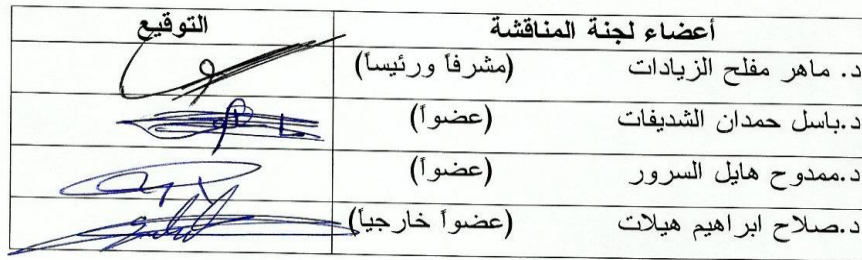 أعضاء لجنة المناقشة التوقيع
د. ماهر مفلح الزيادات (مشرفاً ورئيساً)
د.باسل حمدان الشديفات (عضواً)
د.ممدوح هايل السرور (عضواً)
د.صلاح ابراهيم هيلات (عضواً خارجياً)